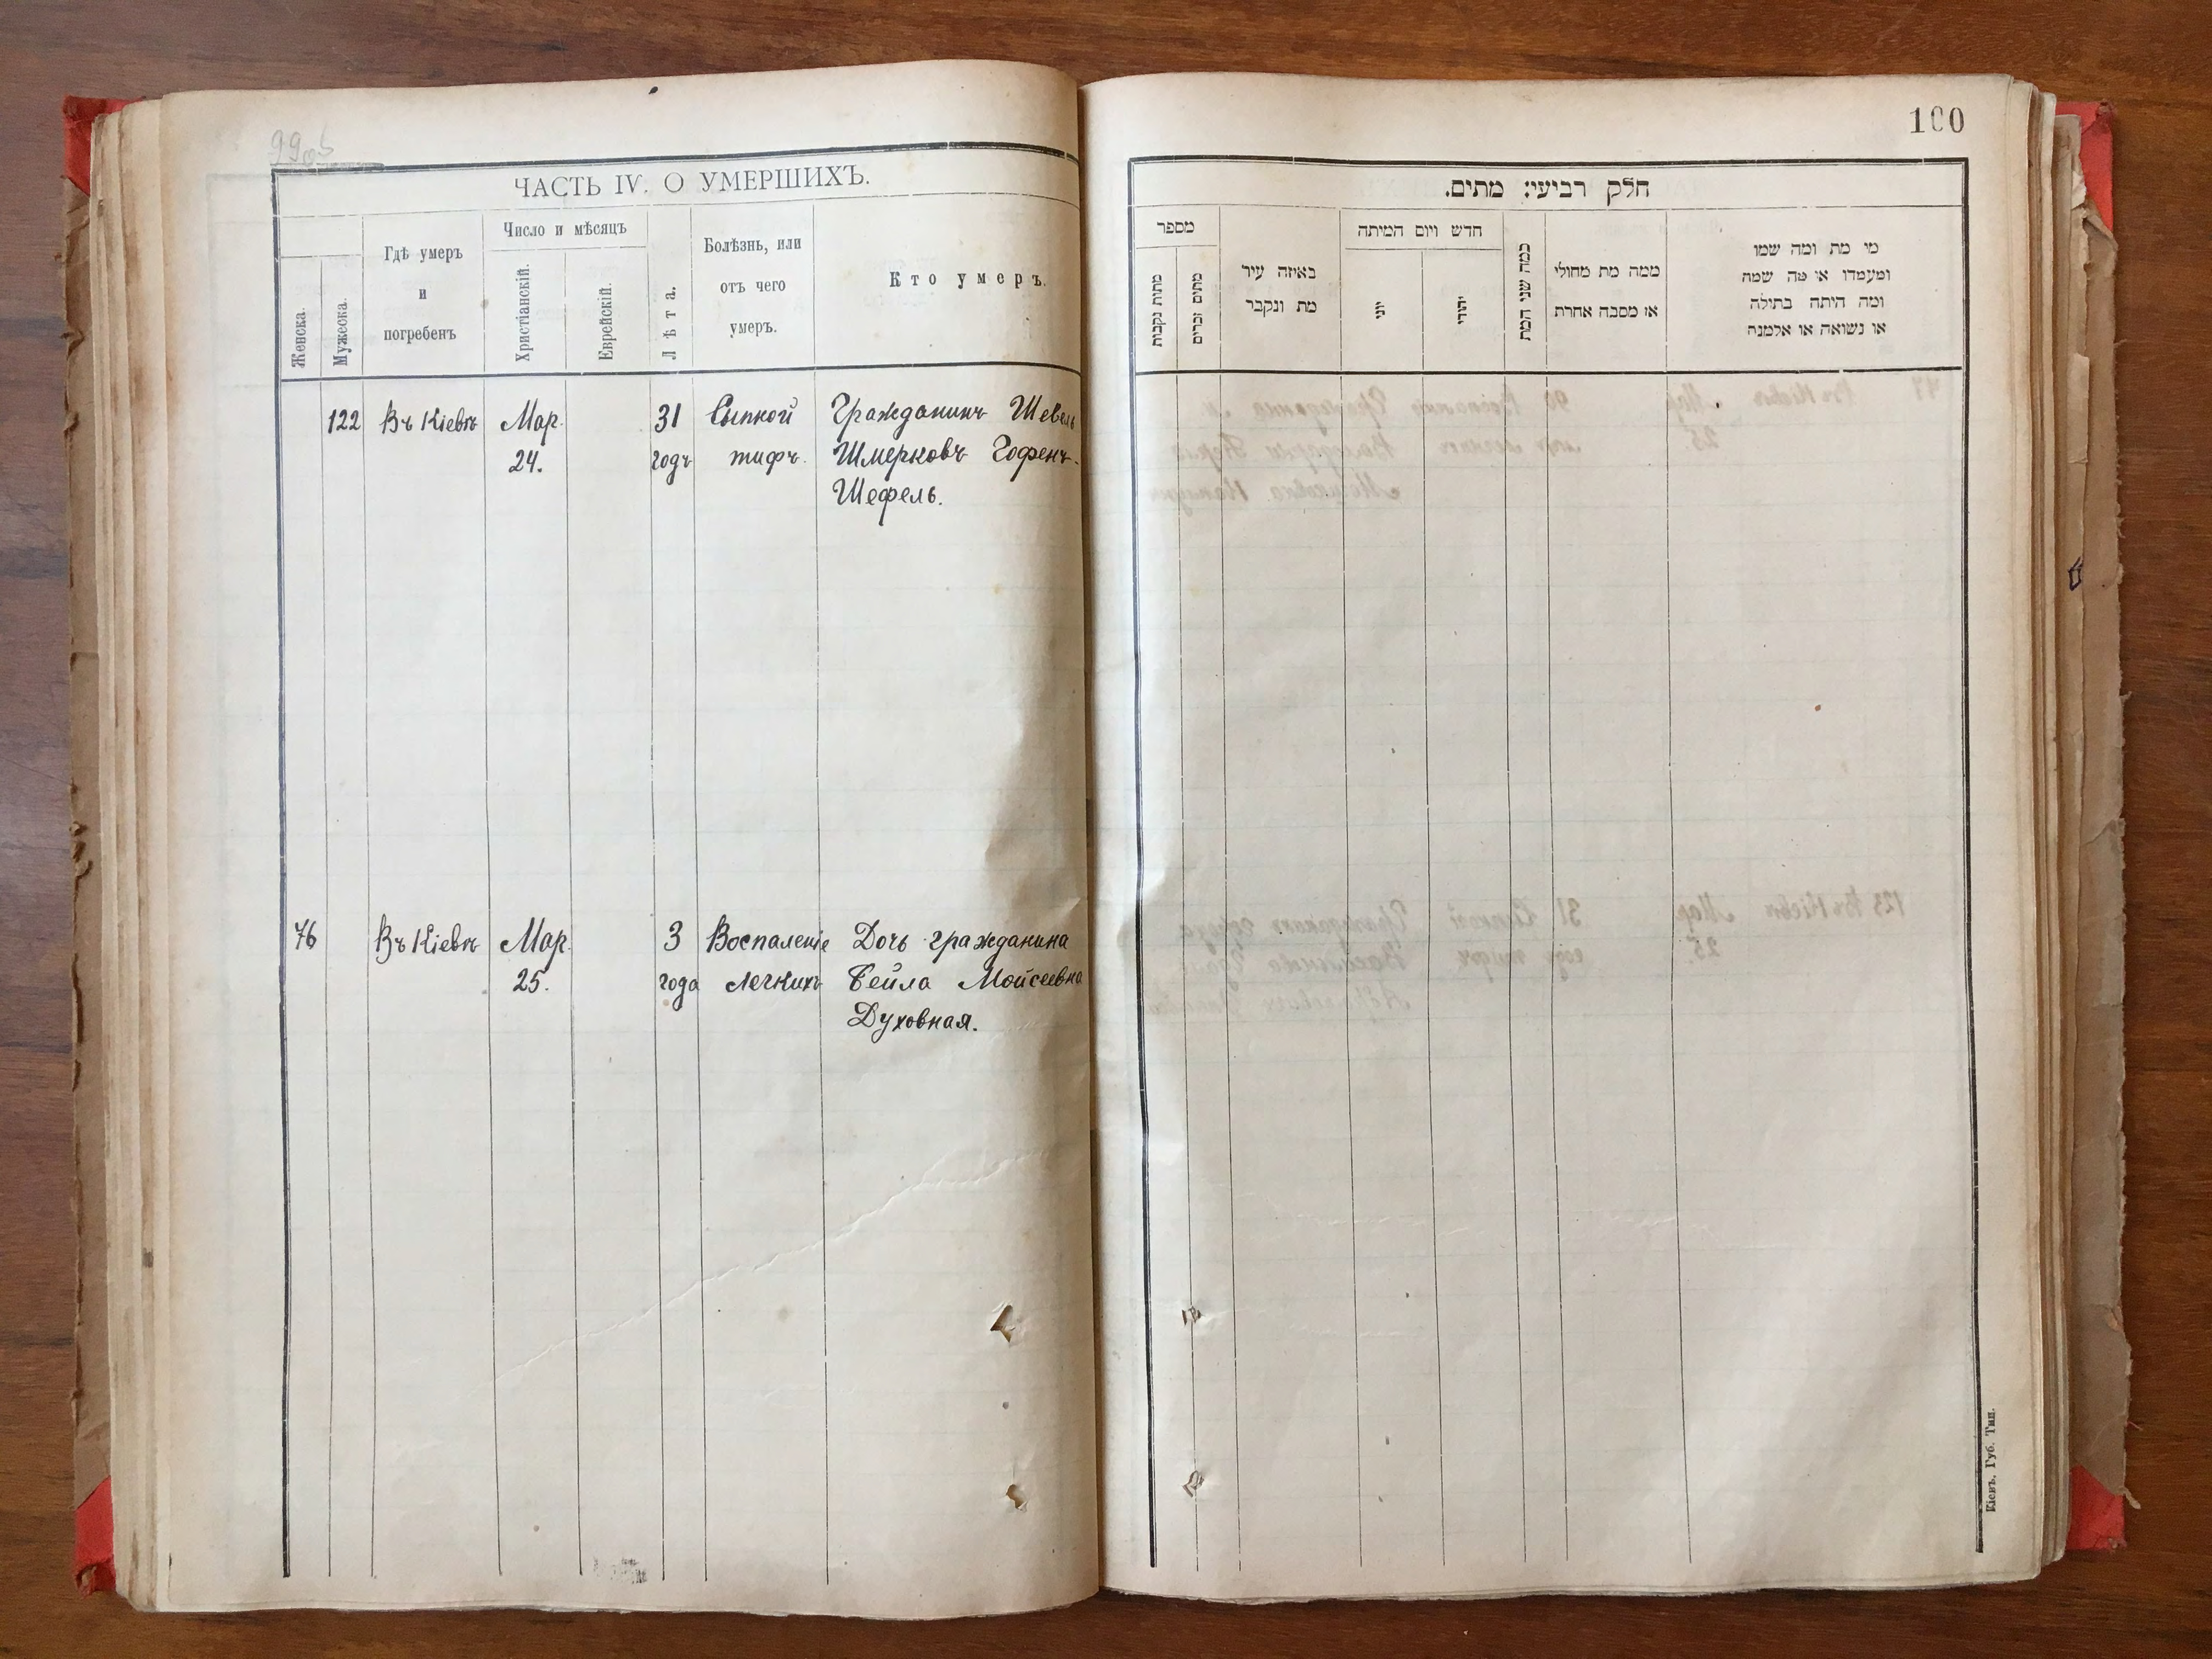 99об
ЧАСТЬ IV. О УМЕРШИХЪ.
Женска.
Мужеска.
Гдѣ умеръ
и
погребенъ
Число и мѣсяцъ
Христіанскій.
Еврейскій.
Лѣта.
Болѣзнь, или
отъ чего
умеръ.
Кто умеръ.
122 Въ Кіевѣ Мар. 31 Сыпной Гражданинъ Шевель
24. годъ тифъ. Шмерковъ Гофенъ-
Шефель.
76 Въ Кіевѣ Мар. 3 Воспаленіе Дочь гражданина
25. года легкихъ Бейла Мойсеевна
Духовная.
100
חלק רביעי: מתים.
מספר
מתות נקבות
מתים זכרים
באיזה עיר
מת ונקבר
חדש ויום המיתה
יוני
יהודי
כמה שני המת
ממה מת מחולי
או מסבה אחרת
מי מת ומה שמו
ומעמדו או מה שמה
ומה היתה בתולה
או נשואה או אלמנה
Кіевъ. Губ. Тип.